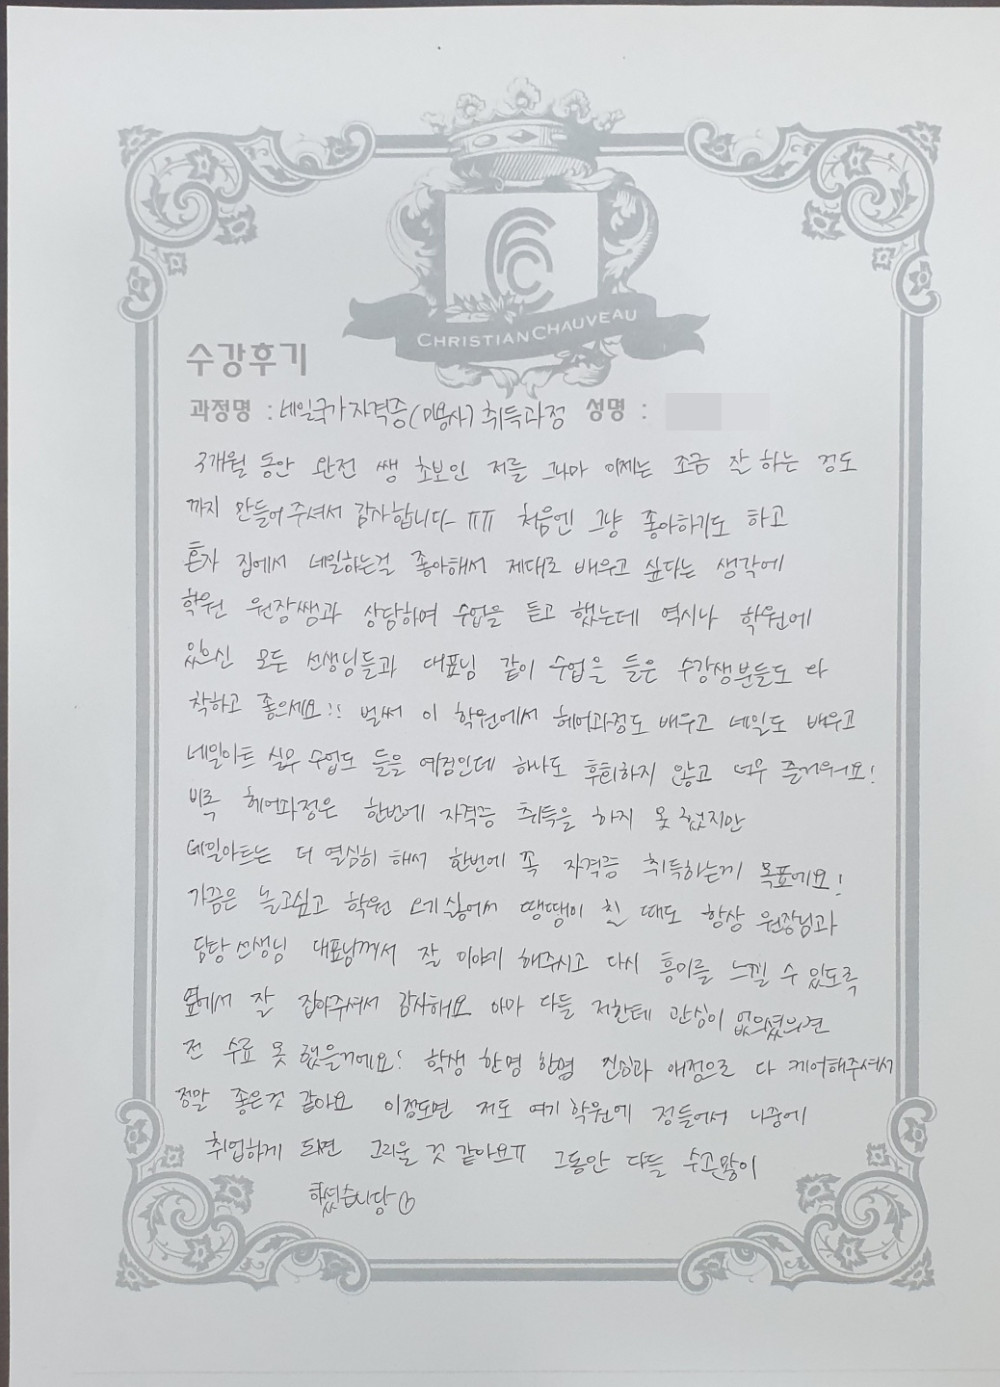 CHRISTIAN CHAUVEAU
수강후기
과정명 : 네일국가자격증(미용사) 취득과정 성명 :
3개월 동안 완전 쌩 초보인 저를 그나마 이제는 조금 잘 하는 정도
까지 만들어 주셔서 감사합니다 ㅠㅠ 처음엔 그냥 좋아하기도 하고
혼자 집에서 네일하는걸 좋아해서 제대로 배우고 싶다는 생각에
학원 원장쌤과 상담하여 수업을 듣고 했는데 역시나 학원에
있으신 모든 선생님들과 대표님 같이 수업을 들은 수강생분들도 다
착하고 좋으세요!! 벌써 이 학원에서 헤어과정도 배우고 네일도 배우고
네일아트 실무 수업도 들을 예정인데 하나도 후회하지 않고 너무 즐거워요!
비록 헤어과정은 한번에 자격증 취득을 하지 못 했지만
네일아트는 더 열심히 해서 한번에 꼭 자격증 취득하는게 목표에요!
가끔은 놀고싶고 학원 오기 싫어서 땡땡이 친 때도 항상 원장님과
담당 선생님 대표님께서 잘 이야기 해주시고 다시 흥미를 느낄 수 있도록
옆에서 잘 잡아주셔서 감사해요 아마 다들 저한테 관심이 없으셨으면
전 수료 못 했을거에요! 학생 한명 한명 진심과 애정으로 다 케어해주셔서
정말 좋은것 같아요 이정도면 저도 여기 학원에 정들어서 나중에
취업하게 되면 그리울 것 같아요ㅠ 그동안 다들 수고많이
하셨습니당